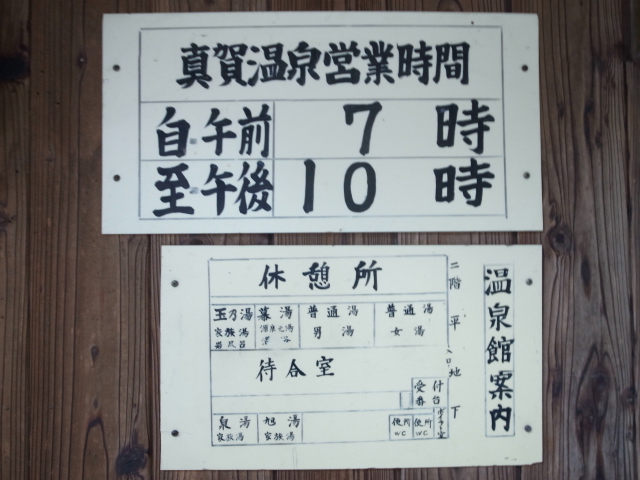 真賀温泉営業時間
自午前 7 時
至午後 10 時
温泉館案内
二階 平 地下
入口
休憩所
玉乃湯 幕湯 普通湯 普通湯
家族湯 男湯 女湯
待合室
受付
番台
泉湯 旭湯 便所 便所 ボイラー室
家族湯 家族湯 WC WC